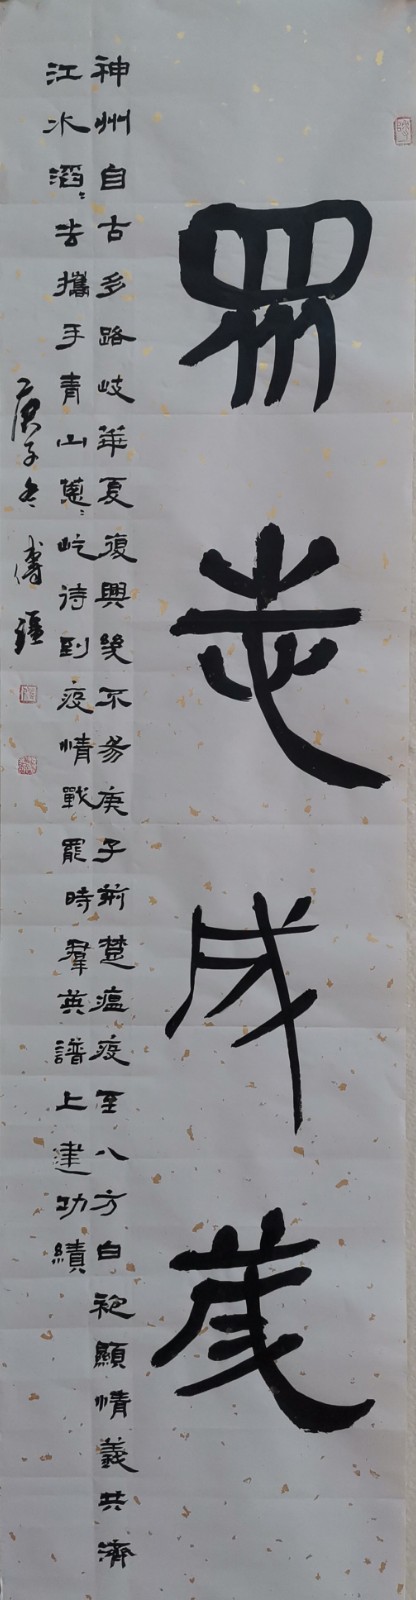 眾志成城
神州自古多路歧華夏復興幾不易庚子荊楚瘟疫至八方白袍顯情義共濟
江水滔〻去攜手青山蔥〻屹待到疫情戰罷時羣英譜上建功績
庚子冬 傅疆